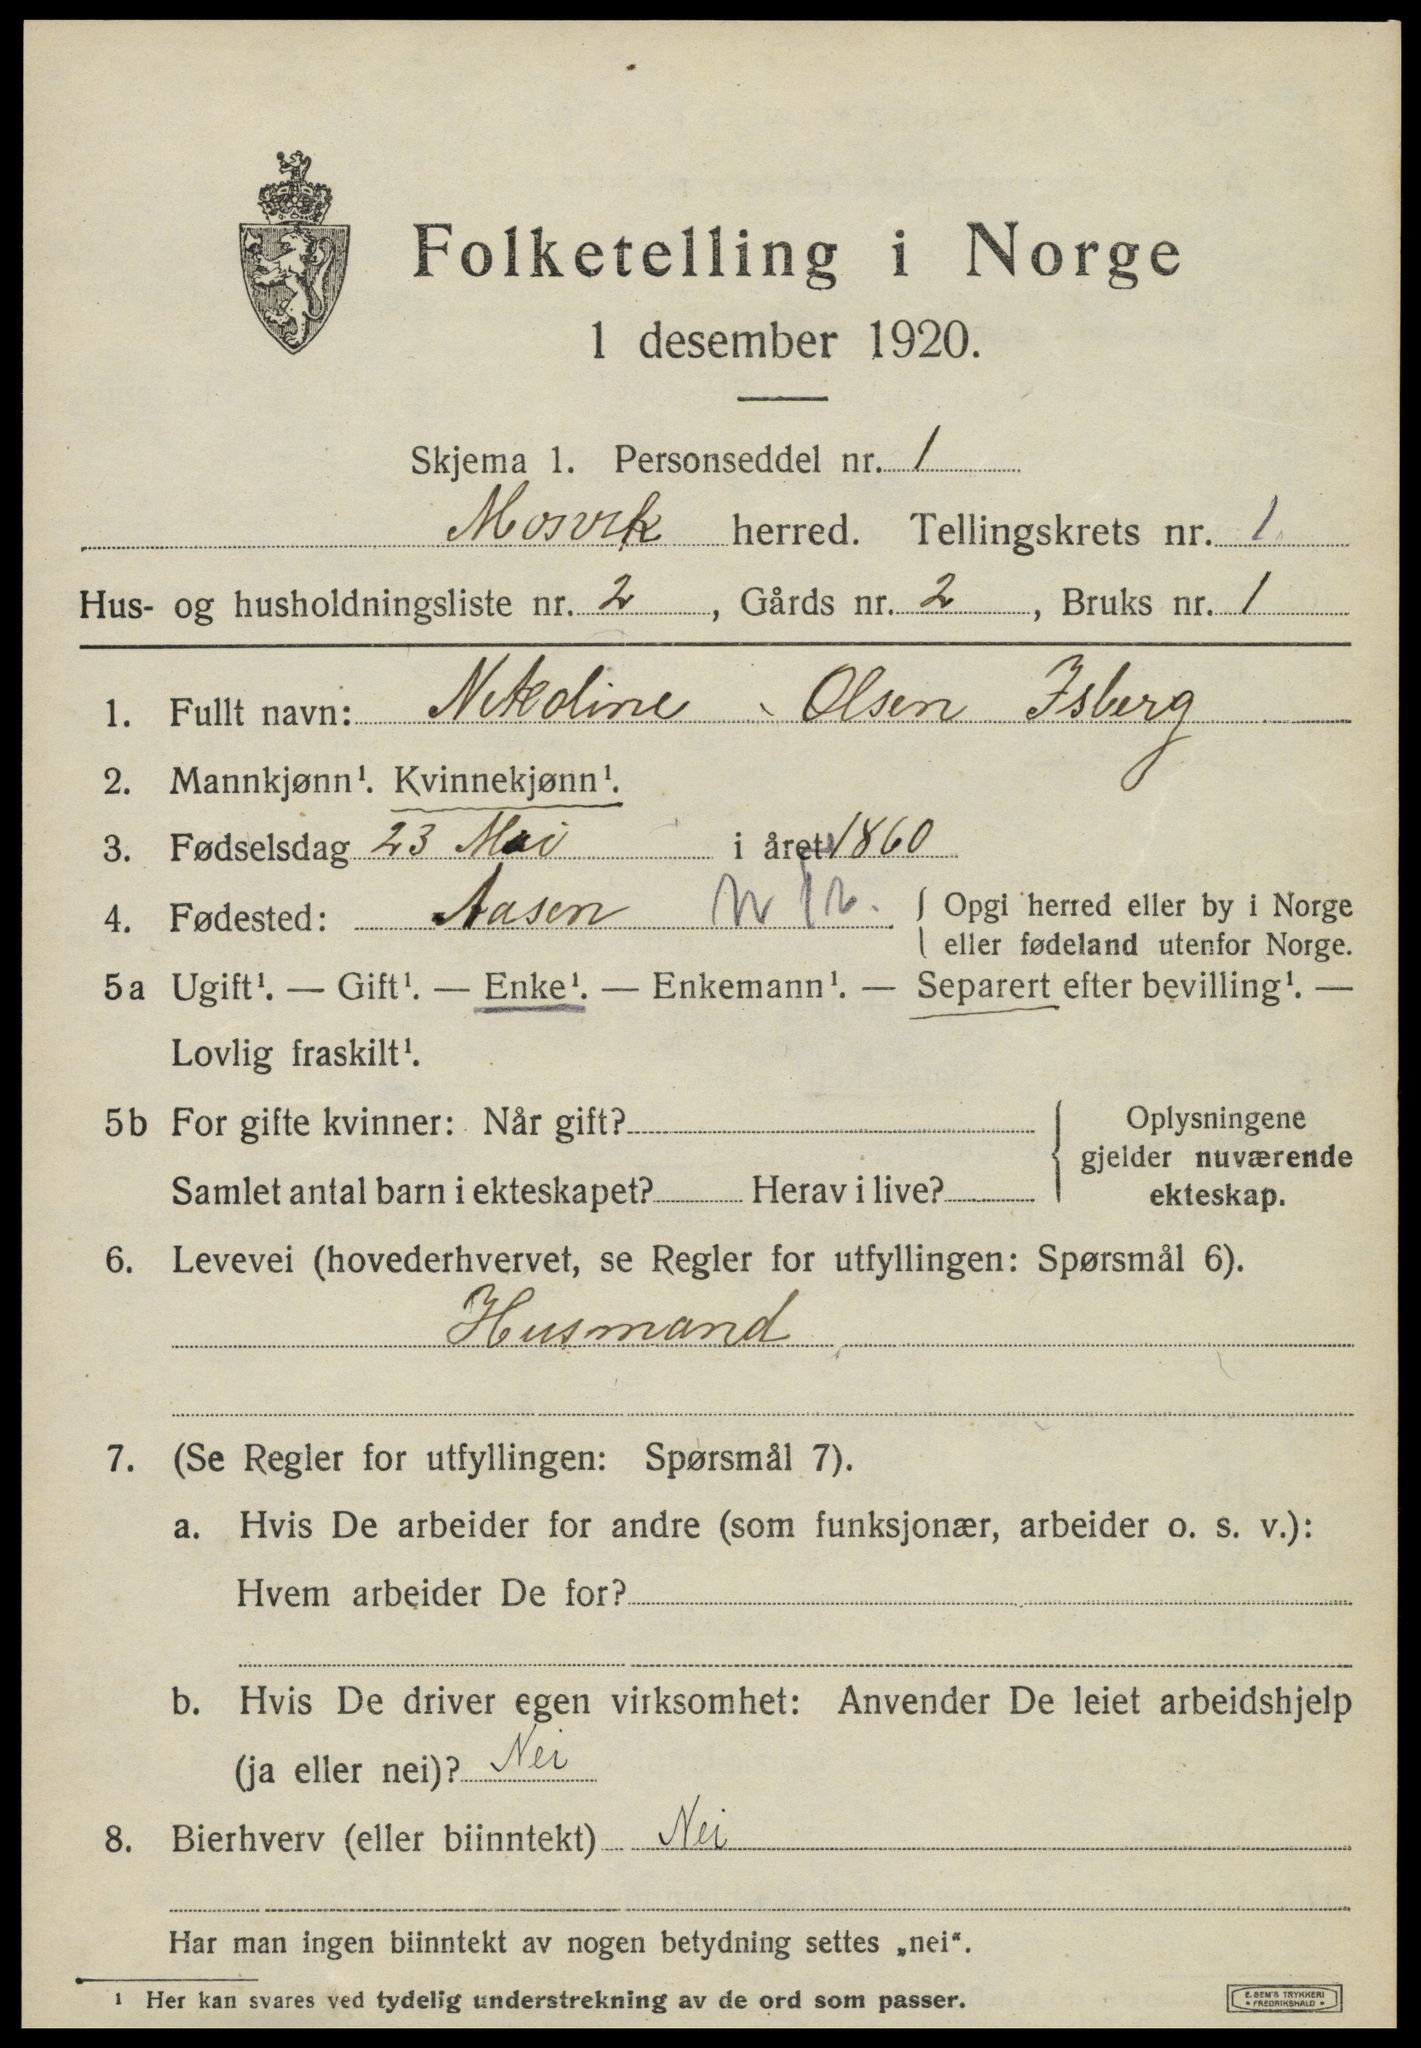 Folketelling i Norge
1 desember 1920.
Skjema 1. Personseddel nr. 1
Mosvik herred. Tellingskrets nr. 1
Hus- og husholdningsliste nr. 2, Gårds nr. 2, Bruks nr. 1
1. Fullt navn: Nekoline Olsen Isberg
2. Mannkjønn¹. Kvinnekjønn¹.
3. Fødselsdag 23 Mai i året 1860
4. Fødested: Aasen { Opgi herred eller by i Norge
eller fødeland utenfor Norge.
5a Ugift¹. — Gift¹. — Enke¹. — Enkemann¹. — Separert efter bevilling¹. —
Lovlig fraskilt¹.
5b For gifte kvinner: Når gift? { Oplysningene
gjelder nuværende
Samlet antal barn i ekteskapet? Herav i live? ekteskap.
6. Levevei (hovederhvervet, se Regler for utfyllingen: Spørsmål 6).
Husmand
7. (Se Regler for utfyllingen: Spørsmål 7).
a. Hvis De arbeider for andre (som funksjonær, arbeider o. s. v.):
Hvem arbeider De for?
b. Hvis De driver egen virksomhet: Anvender De leiet arbeidshjelp
(ja eller nei)? Nei
8. Bierhverv (eller biinntekt) Nei
Har man ingen biinntekt av nogen betydning settes „nei“.
¹ Her kan svares ved tydelig understrekning av de ord som passer.
E. SEM'S TRYKKERI
• FREDRIKSHALD •